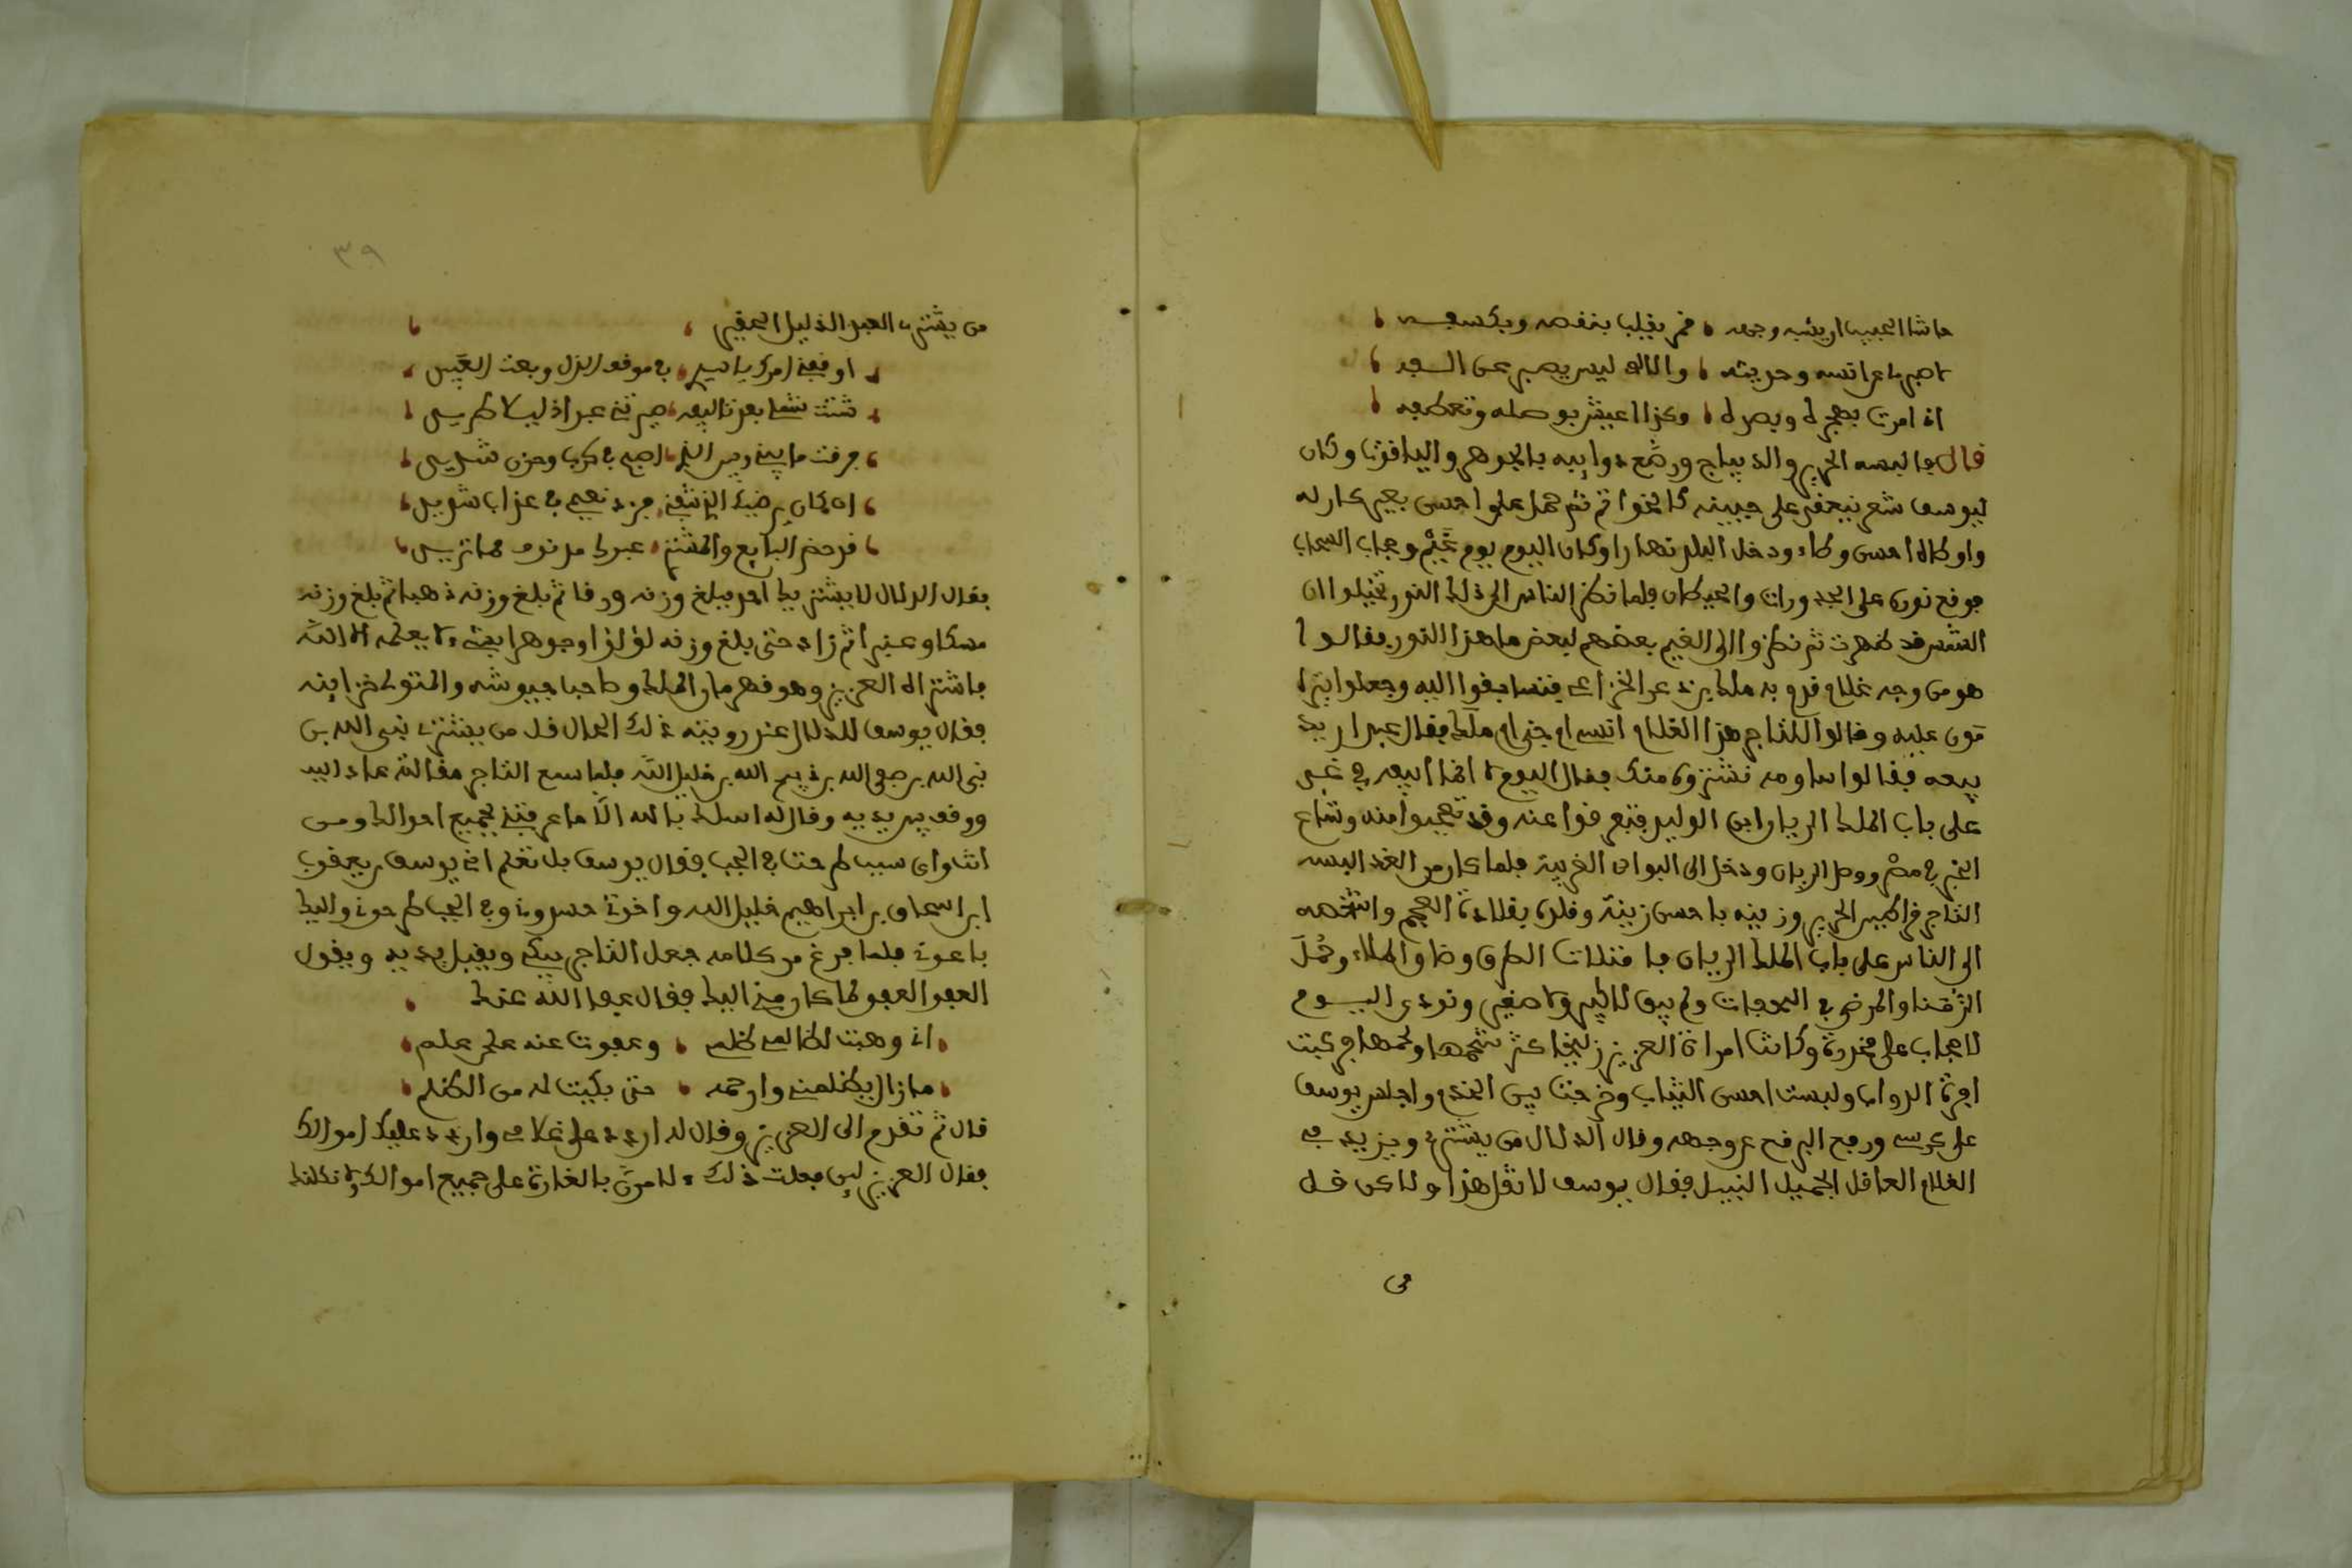 حاشا الحبيب اريته وجهه قمر يغيب بنقصه وبكسوفه
اذ امرت بهجره وبصده وكذا اعيش بوصله وتعطفه
قال فالبسه الحرير والديباج ورصع ذوايبه بالجوهر والياقوت وكان
ليوسف شعر ينعقد على جبينه كالخواتم ثم حمله على احسن بعير كان له
واوطاه احسن وطاء ودخل البلد نهارا وكان اليوم يوم غيم وحجاب السحاب
فوقع نوره على الجدورات والحيطان فلما نظر الناس الى ذلك النور تخيلوا ان
الشمس قد ظهرت ثم نظروا الى الغيم بعضهم لبعض ما هذا النور فقالوا
هو من وجه غلام قدم به ملك بن ذعر الخزاعي فتسابقوا اليه وجعلوا يترا
مون عليه وقالوا للتاجر هذا الغلام انسي ام جني ام ملك فقال عبد اريد
بيعه فقالوا ساومه نشتروه منك فقال اليوم لا انما ابيعه في غد
على باب الملك الريان ابن الوليد فتفرقوا عنه وقد تعجبوا منه وشاع
الخبر في مصر ووصل الريان ودخل الى البوان الغربية فلما كان من الغد البسه
التاجر فواخير الحرير وزينه باحسن زينة وقلده بقلادة العجم واشخصه
الى الناس على باب الملك الريان فامتلات الطرق وضاق الملاء وحمل
الزمنا والمرضى في المحفات ولم يبق لا كبير ولا صغير ونودي اليسوم
لا حجاب على مخدرة وكانت امراة العزيز زليخا كثر شحمها ولحمها فركبت
افره الدواب ولبست احسن الثياب وخرجت بين الخدم واجلس يوسف
على كرسي ورفع البرقع عن وجهه وقال الدلال من يشتري ويزيد في
الغلام العاقل الجميل النبيل فقال يوسف لا تقل هذا ولاكن قل
من
٣٩
من يشتري العبد الذليل الحقير
اوقفني امرك يا سيدي في موقف الذل وبعت العبيد
شتت شملي بعدنا اليعه صيرتني عبدا ذليلا طريد
فرقت ما بيني وبين الذي اصبح في كرب وحزن شديد
ان كان يرضيك الذي شفني فزد نعيمي في عذاب شديد
قد حضر البايع والمشتري عبدك مر نوف مما تريد
فقال الدلال لا يشتريك احد فبلغ وزنه ورقا ثم بلغ وزنه ذهبا ثم بلغ وزنه
مسكا وعنبرا ثم زاد حتى بلغ وزنه لؤلؤا وجوهرا بقيمة لا يعلمه الا الله
فاشتراه العزيز وهو قهرمان الملك وصاحب جيوشه والمتولي خزاينه
فقال يوسف للدلال عند رويته ذلك الحال قل من يشتري نبي الله بن
نبي الله بن صفي الله بن ذبيح الله بن خليل الله فلما سمع التاجر مقالته عاد اليه
ووقف بين يديه وقال له اسلك بالله الا ما عرفتني بجميع احوالك ومن
انت واي سبب طرحت في الجب فقال يوسف بل تعلم اني يوسف بن يعقوب
ابن اسحاق بن ابراهيم خليل الله واخوتي حسدوني وفي الجب طرحوني واليك
باعوني فلما فرغ من كلامه جعل التاجر يبكي ويقبل يديه ويقول
العفو العفو لما كان مني اليك فقال عفا الله عنك
اني وهبت لظالمي ظلمي وعفوت عنه على علم
ما زال يظلمني وارحمه حتى بكيت له من الظلم
قال ثم تقدم الى العزيز وقال له اردد علي غلامي واردد عليك اموالك
فقال العزيز لين فعلت ذلك لامرن بالغارة على جميع اموالك